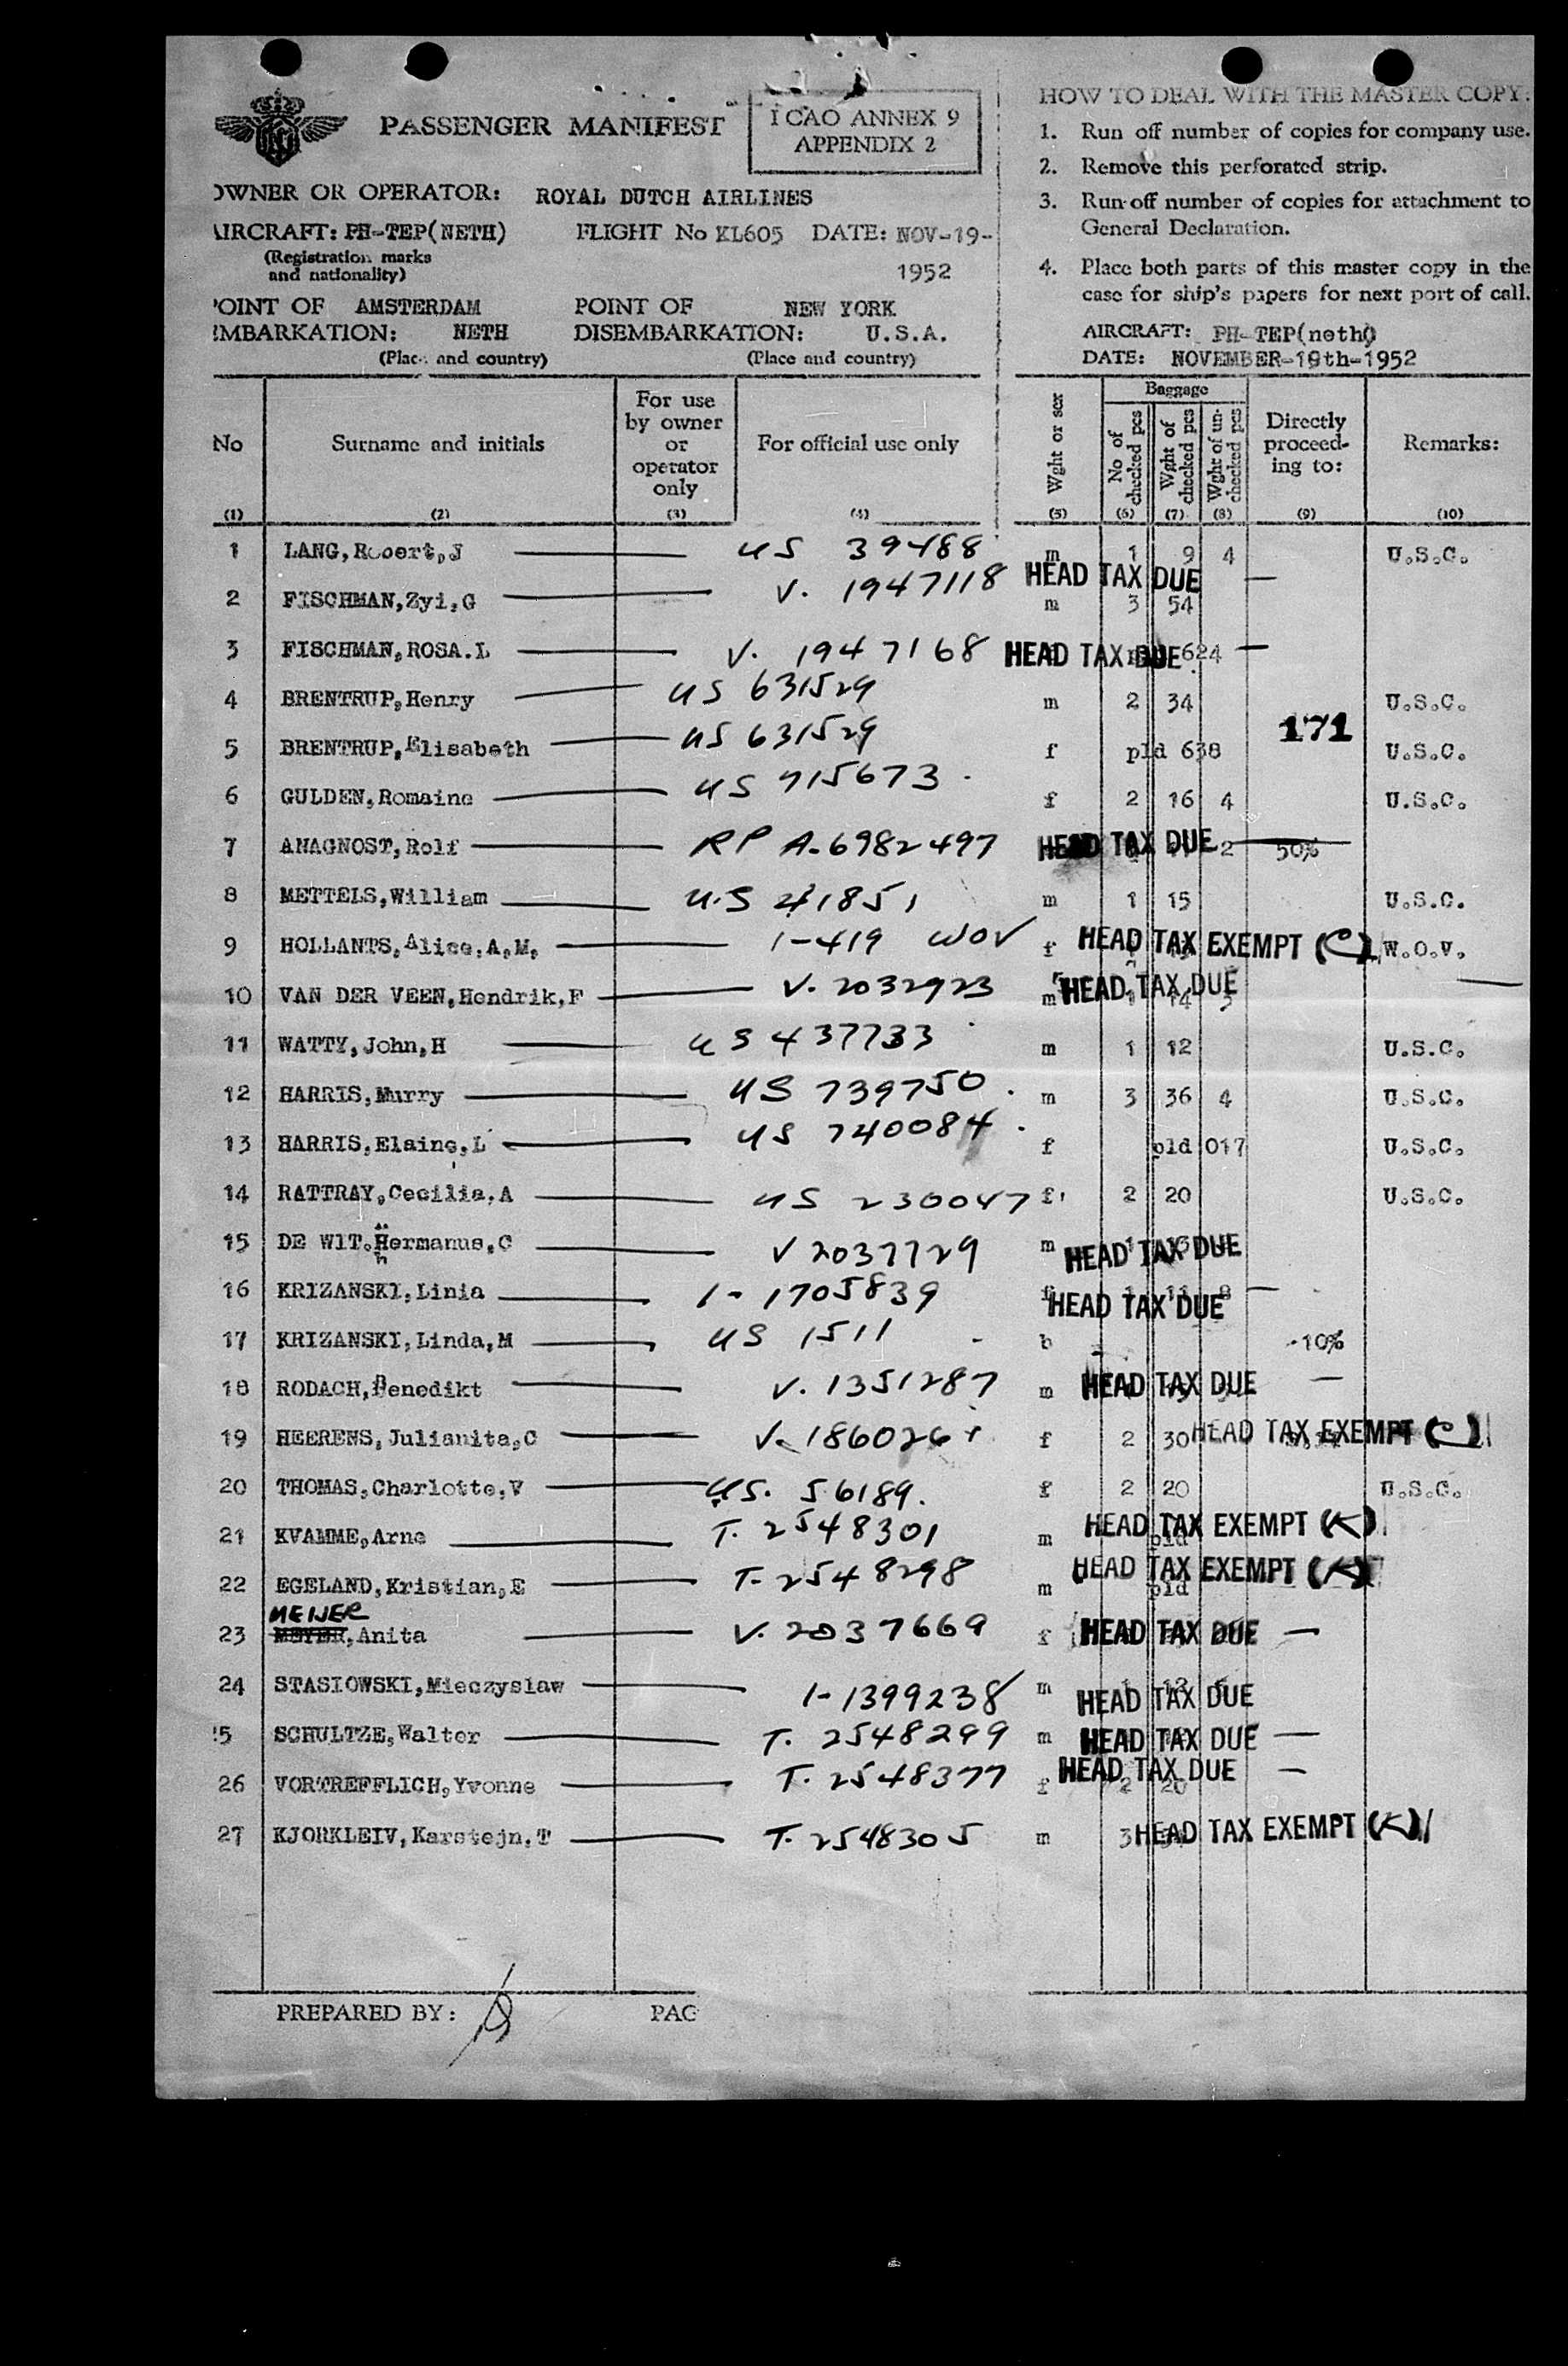 PASSENGER MANIFEST
ICAO ANNEX 9
APPENDIX 2
OWNER OR OPERATOR: ROYAL DUTCH AIRLINES
AIRCRAFT: PH-TEP(NETH) FLIGHT No KL605 DATE: NOV-19-
(Registration marks
and nationality)
1952
POINT OF AMSTERDAM POINT OF NEW YORK
EMBARKATION: NETH DISEMBARKATION: U.S.A.
(Place and country) (Place and country)
HOW TO DEAL WITH THE MASTER COPY:
1. Run off number of copies for company use.
2. Remove this perforated strip.
3. Run off number of copies for attachment to
General Declaration.
4. Place both parts of this master copy in the
case for ship's papers for next port of call.
AIRCRAFT: PH-TEP(neth)
DATE: NOVEMBER-19th-1952
No Surname and initials
For use
by owner
or
operator
only
For official use only
Wght or sex
Baggage
No of
checked pcs
Wght of
checked pcs
Wght of un-
checked pcs
Directly
proceed-
ing to:
Remarks:
(1) (2) (3) (4) (5) (6) (7) (8) (9) (10)
1 LANG, Robert, J US 39488 m 1 9 4 U.S.C.
2 FISCHMAN, Zyi, G V. 1947118 HEAD TAX DUE m 3 54
3 FISCHMAN, ROSA. L V. 1947168 HEAD TAX DUE 624
4 BRENTRUP, Henry US 631529 m 2 34 U.S.C.
171
5 BRENTRUP, Elisabeth US 631529 f pld 638 U.S.C.
6 GULDEN, Romaine US 715673 f 2 16 4 U.S.C.
7 ANAGNOST, Rolf RP A-6982497 HEAD TAX DUE 2 50%
8 METTELS, William U.S 41851 m 1 15 U.S.C.
9 HOLLANTS, Alice, A, M, 1-419 WOV f HEAD TAX EXEMPT (C) W.O.V.
10 VAN DER VEEN, Hendrik, F V. 2032923 m HEAD TAX DUE 14
11 WATTY, John, H US 437733 m 1 12 U.S.C.
12 HARRIS, Murry US 739750 m 3 36 4 U.S.C.
13 HARRIS, Elaine, L US 740084 f pld 017 U.S.C.
14 RATTRAY, Cecilia, A US 230047 f 2 20 U.S.C.
15 DE WIT. Hermanus, C V 2037729 m HEAD TAX DUE
16 KRIZANSKI, Linia 1-1705839 f HEAD TAX DUE
17 KRIZANSKI, Linda, M US 1511 b 10%
18 RODACH, Benedikt V. 1351287 m HEAD TAX DUE
19 HEERENS, Julianita, C V. 186026 f 2 30 HEAD TAX EXEMPT (C)
20 THOMAS, Charlotte, V US. 56189. f 2 20 U.S.C.
21 KVAMME, Arne T. 2548301 m pld HEAD TAX EXEMPT (K)
22 EGELAND, Kristian, E T-2548298 m pld HEAD TAX EXEMPT (K)
MEIJER
23 MEYER, Anita V. 2037669 f HEAD TAX DUE
24 STASIOWSKI, Mieczyslaw 1-1399238 m HEAD TAX DUE
25 SCHULTZE, Walter T. 2548299 m HEAD TAX DUE
26 VORTREFFLICH, Yvonne T. 2548377 f HEAD TAX DUE 2 20
27 KJORKLEIV, Karstejn, T T. 2548305 m 3 HEAD TAX EXEMPT (K)
PREPARED BY: PAG